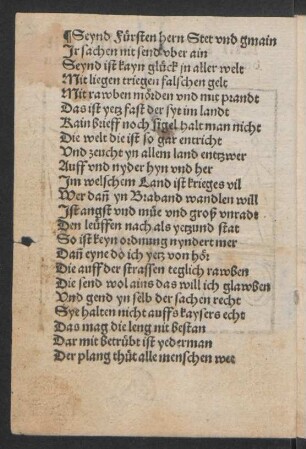 ¶Seynd Fürsten hern Stet vnd gmain
Ir sachen nit send vber ain
Seynd ist kayn glück in aller welt
Mit liegen triegen falschen gelt
Mit rawben mörden vnd mit prandt
Das ist yetz fast der syt im landt
Kain brieff noch sigel halt man nicht
Die welt die ist so gar entricht
Vnd zeucht yn allem land entzwer
Auff vnd nyder hyn vnd her
Im welschem Land ist krieges vil
Wer dañ yn Braband wandlen will
Ist angst vnd müe vnd groß vnradt
Den leüffen nach als yetzund stat
So ist keyn ordnung nyndert mer
Dañ eyne do ich yetz von hör
Die auff der strassen teglich rawben
Die send wol ains das will ich glawben
Vnd gend yn selb der sachen recht
Sye halten nicht auffs kaysers echt
Das mag die leng nit bestan
Dar mit betrübt ist yederman
Der plang thüt alle menschen wee